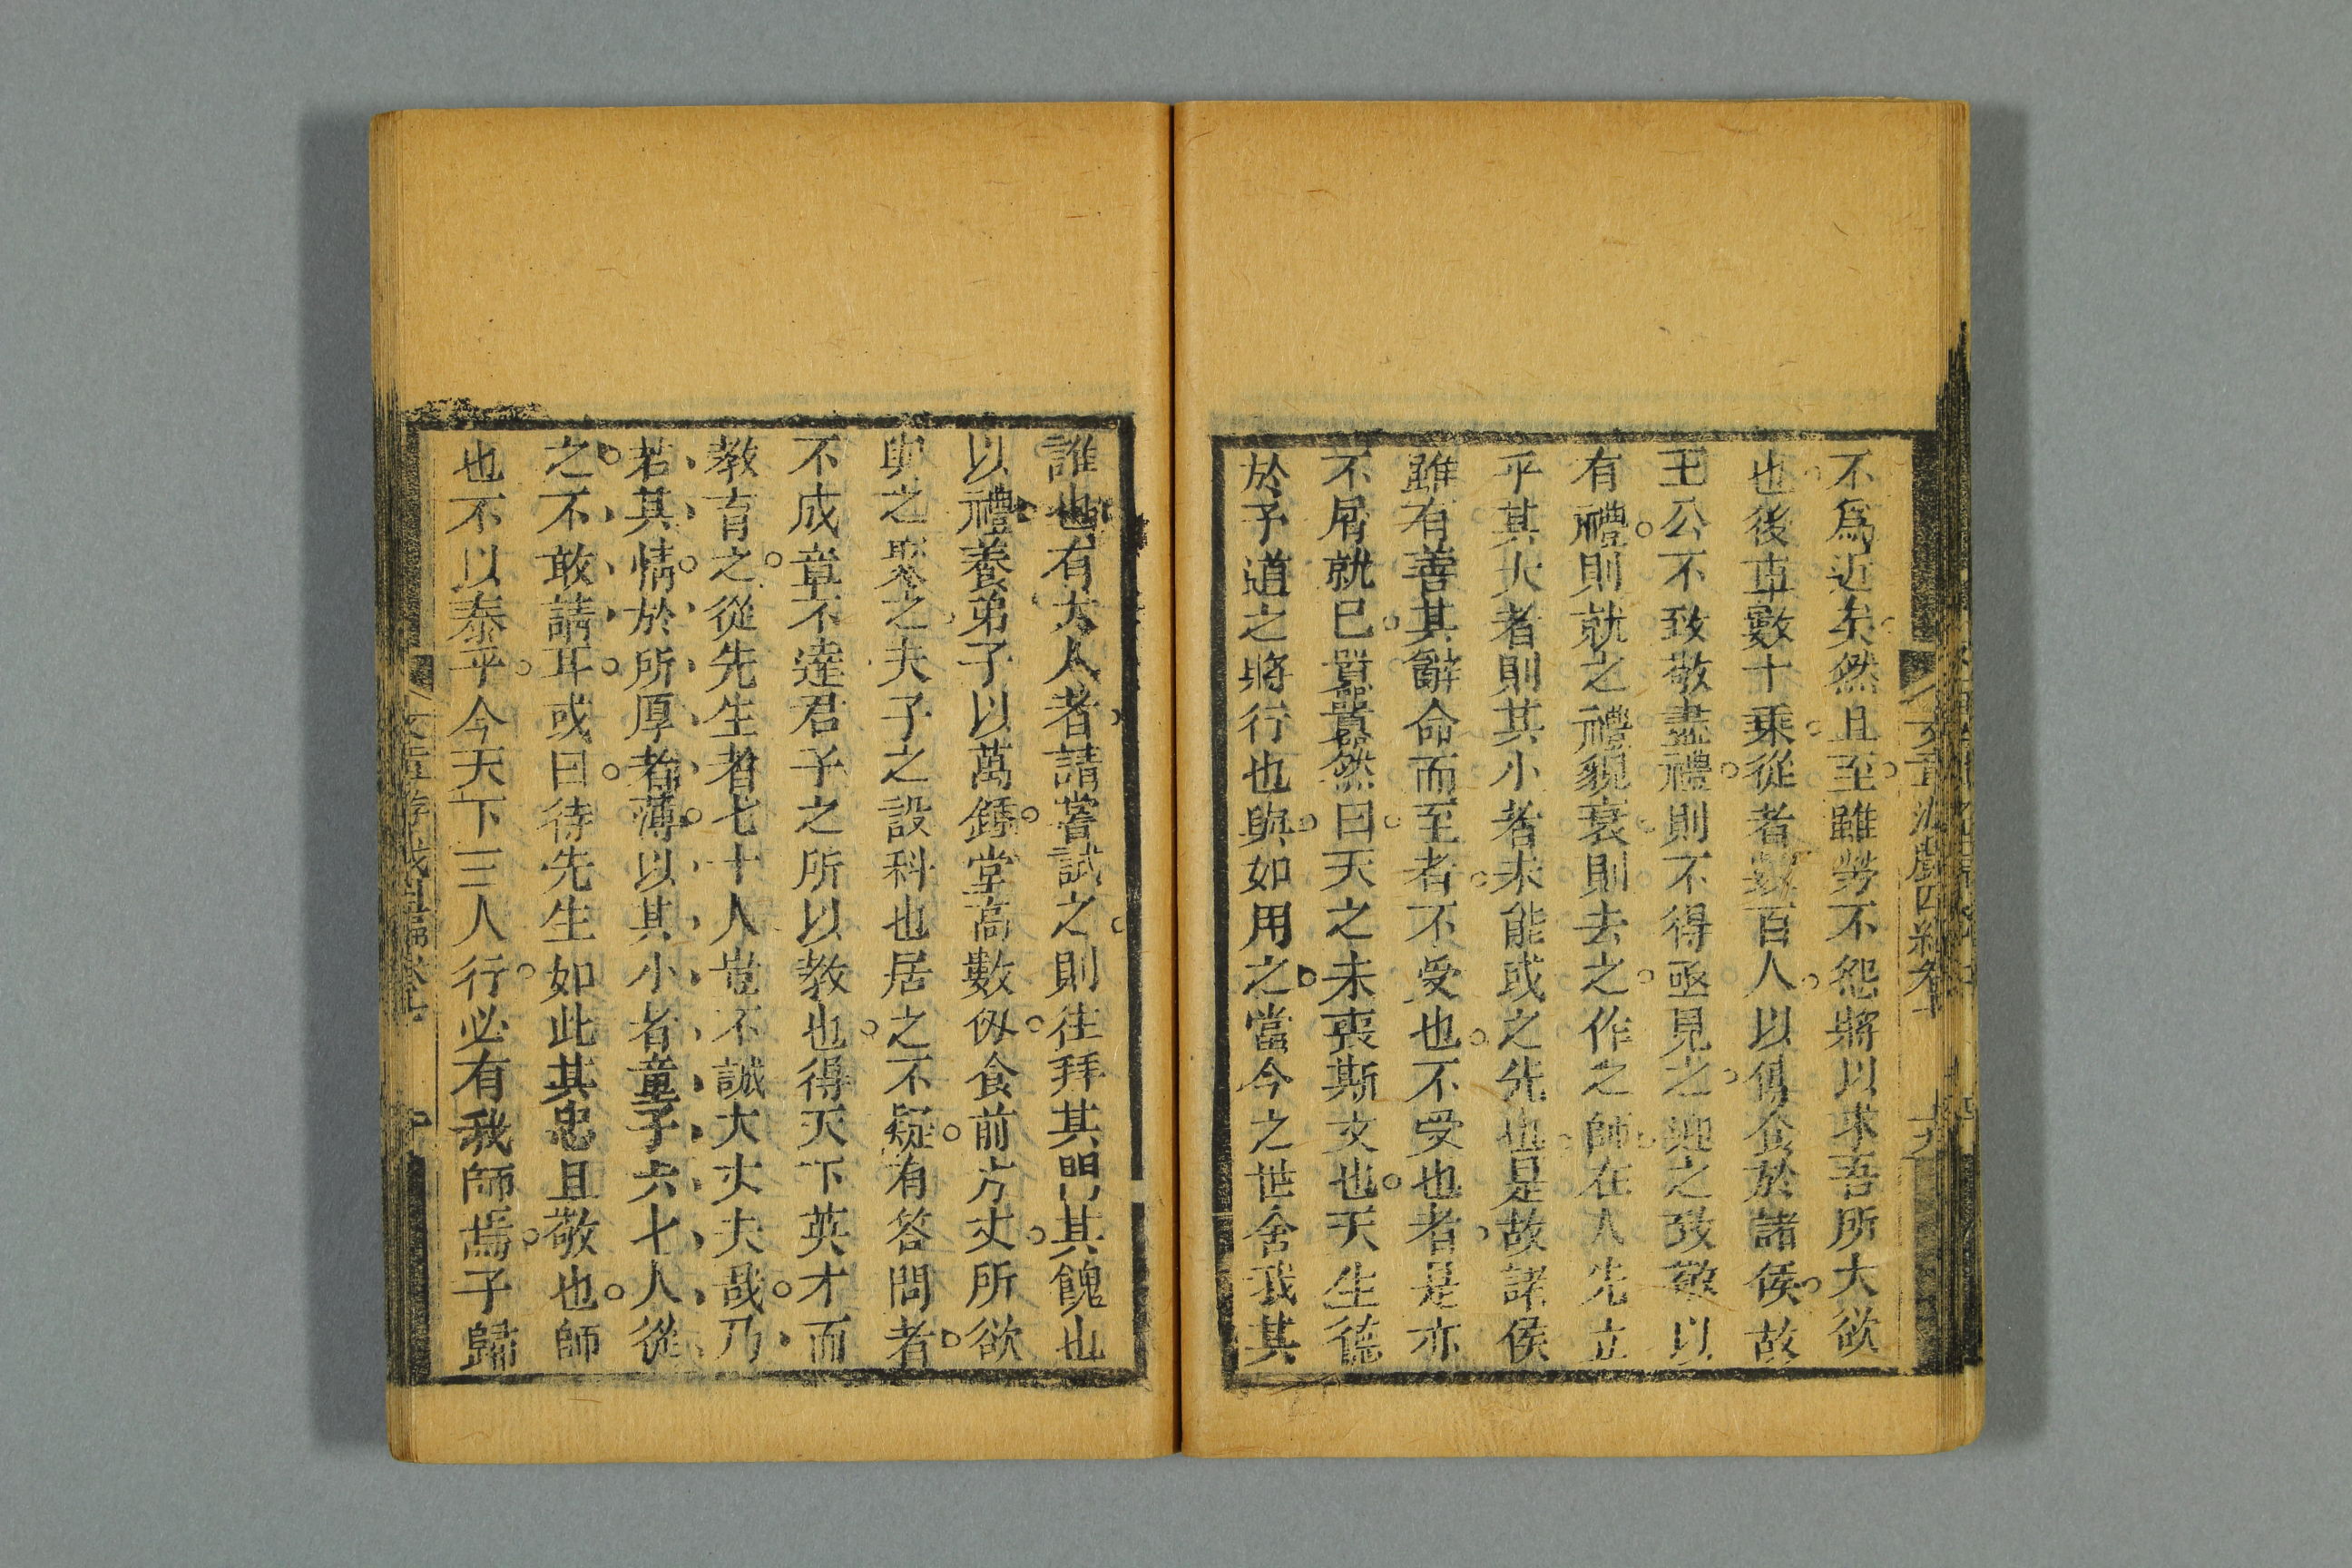 不爲近矣然且至雖勞不怨將以求吾所大欲
也後車數十乘從者數百人以傳食於諸侯故
王公不致敬盡禮則不得亟見之迎之致敬以
有禮則就之禮貌衰則去之作之師在人先立
乎其大者則其小者未能或之先也是故諸侯
雖有善其辭命而至者不受也不受也者是亦
不屑就已囂囂然曰天之未喪斯文也天生德
於予道之將行也與如用之當今之世舍我其
誰也有大人者請嘗試之則往拜其門其餽也
以禮養弟子以萬鍾堂高數仞食前方丈所欲
與之聚之夫子之設科也居之不疑有答問者
不成章不達君子之所以教也得天下英才而
教育之從先生者七十人豈不誠大丈夫哉乃
若其情於所厚者薄以其小者童子六七人從
之不敢請耳或曰待先生如此其忠且敬也師
也不以泰乎今天下三人行必有我師焉子歸